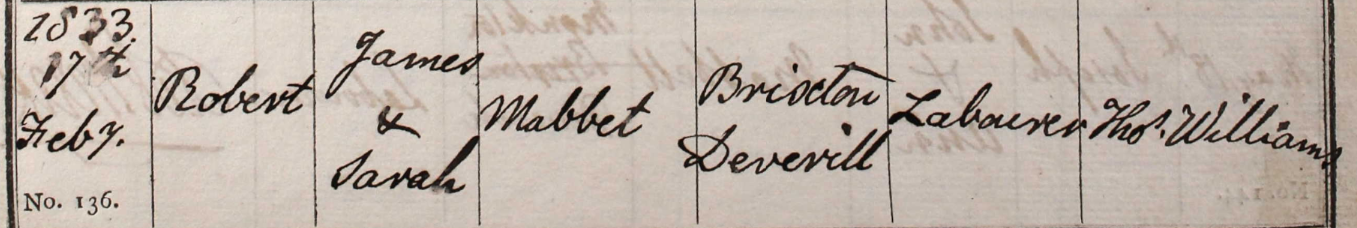 1833.
17th
Feby.
No. 136.
Robert
James
&
Sarah
Mabbet
Brixton
Deverill
Labourer
Thos. Williams